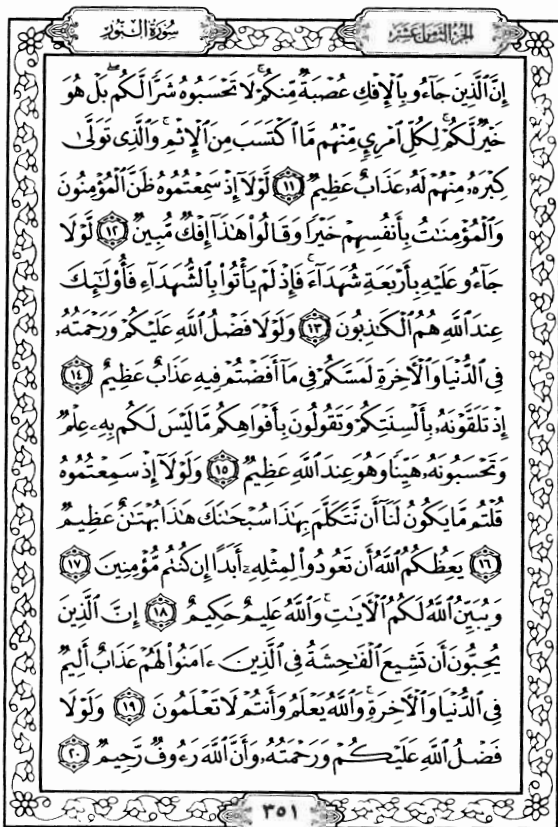 سُورَةُ النُّورِ
الجُزْءُ الثَّامِنَ عَشَرَ
إِنَّ ٱلَّذِينَ جَآءُو بِٱلْإِفْكِ عُصْبَةٌ مِّنكُمْ ۚ لَا تَحْسَبُوهُ شَرًّا لَّكُم ۖ بَلْ هُوَ
خَيْرٌ لَّكُمْ ۚ لِكُلِّ ٱمْرِئٍ مِّنْهُم مَّا ٱكْتَسَبَ مِنَ ٱلْإِثْمِ ۚ وَٱلَّذِى تَوَلَّىٰ
كِبْرَهُۥ مِنْهُمْ لَهُۥ عَذَابٌ عَظِيمٌ ١١ لَّوْلَآ إِذْ سَمِعْتُمُوهُ ظَنَّ ٱلْمُؤْمِنُونَ
وَٱلْمُؤْمِنَـٰتُ بِأَنفُسِهِمْ خَيْرًا وَقَالُوا۟ هَـٰذَآ إِفْكٌ مُّبِينٌ ١٢ لَّوْلَا
جَآءُو عَلَيْهِ بِأَرْبَعَةِ شُهَدَآءَ ۚ فَإِذْ لَمْ يَأْتُوا۟ بِٱلشُّهَدَآءِ فَأُو۟لَـٰٓئِكَ
عِندَ ٱللَّهِ هُمُ ٱلْكَـٰذِبُونَ ١٣ وَلَوْلَا فَضْلُ ٱللَّهِ عَلَيْكُمْ وَرَحْمَتُهُۥ
فِى ٱلدُّنْيَا وَٱلْـَٔاخِرَةِ لَمَسَّكُمْ فِى مَآ أَفَضْتُمْ فِيهِ عَذَابٌ عَظِيمٌ ١٤
إِذْ تَلَقَّوْنَهُۥ بِأَلْسِنَتِكُمْ وَتَقُولُونَ بِأَفْوَاهِكُم مَّا لَيْسَ لَكُم بِهِۦ عِلْمٌ
وَتَحْسَبُونَهُۥ هَيِّنًا وَهُوَ عِندَ ٱللَّهِ عَظِيمٌ ١٥ وَلَوْلَآ إِذْ سَمِعْتُمُوهُ
قُلْتُم مَّا يَكُونُ لَنَآ أَن نَّتَكَلَّمَ بِهَـٰذَا سُبْحَـٰنَكَ هَـٰذَا بُهْتَـٰنٌ عَظِيمٌ
١٦ يَعِظُكُمُ ٱللَّهُ أَن تَعُودُوا۟ لِمِثْلِهِۦٓ أَبَدًا إِن كُنتُم مُّؤْمِنِينَ ١٧
وَيُبَيِّنُ ٱللَّهُ لَكُمُ ٱلْـَٔايَـٰتِ ۚ وَٱللَّهُ عَلِيمٌ حَكِيمٌ ١٨ إِنَّ ٱلَّذِينَ
يُحِبُّونَ أَن تَشِيعَ ٱلْفَـٰحِشَةُ فِى ٱلَّذِينَ ءَامَنُوا۟ لَهُمْ عَذَابٌ أَلِيمٌ
فِى ٱلدُّنْيَا وَٱلْـَٔاخِرَةِ ۚ وَٱللَّهُ يَعْلَمُ وَأَنتُمْ لَا تَعْلَمُونَ ١٩ وَلَوْلَا
فَضْلُ ٱللَّهِ عَلَيْكُمْ وَرَحْمَتُهُۥ وَأَنَّ ٱللَّهَ رَءُوفٌ رَّحِيمٌ ٢٠
٣٥١